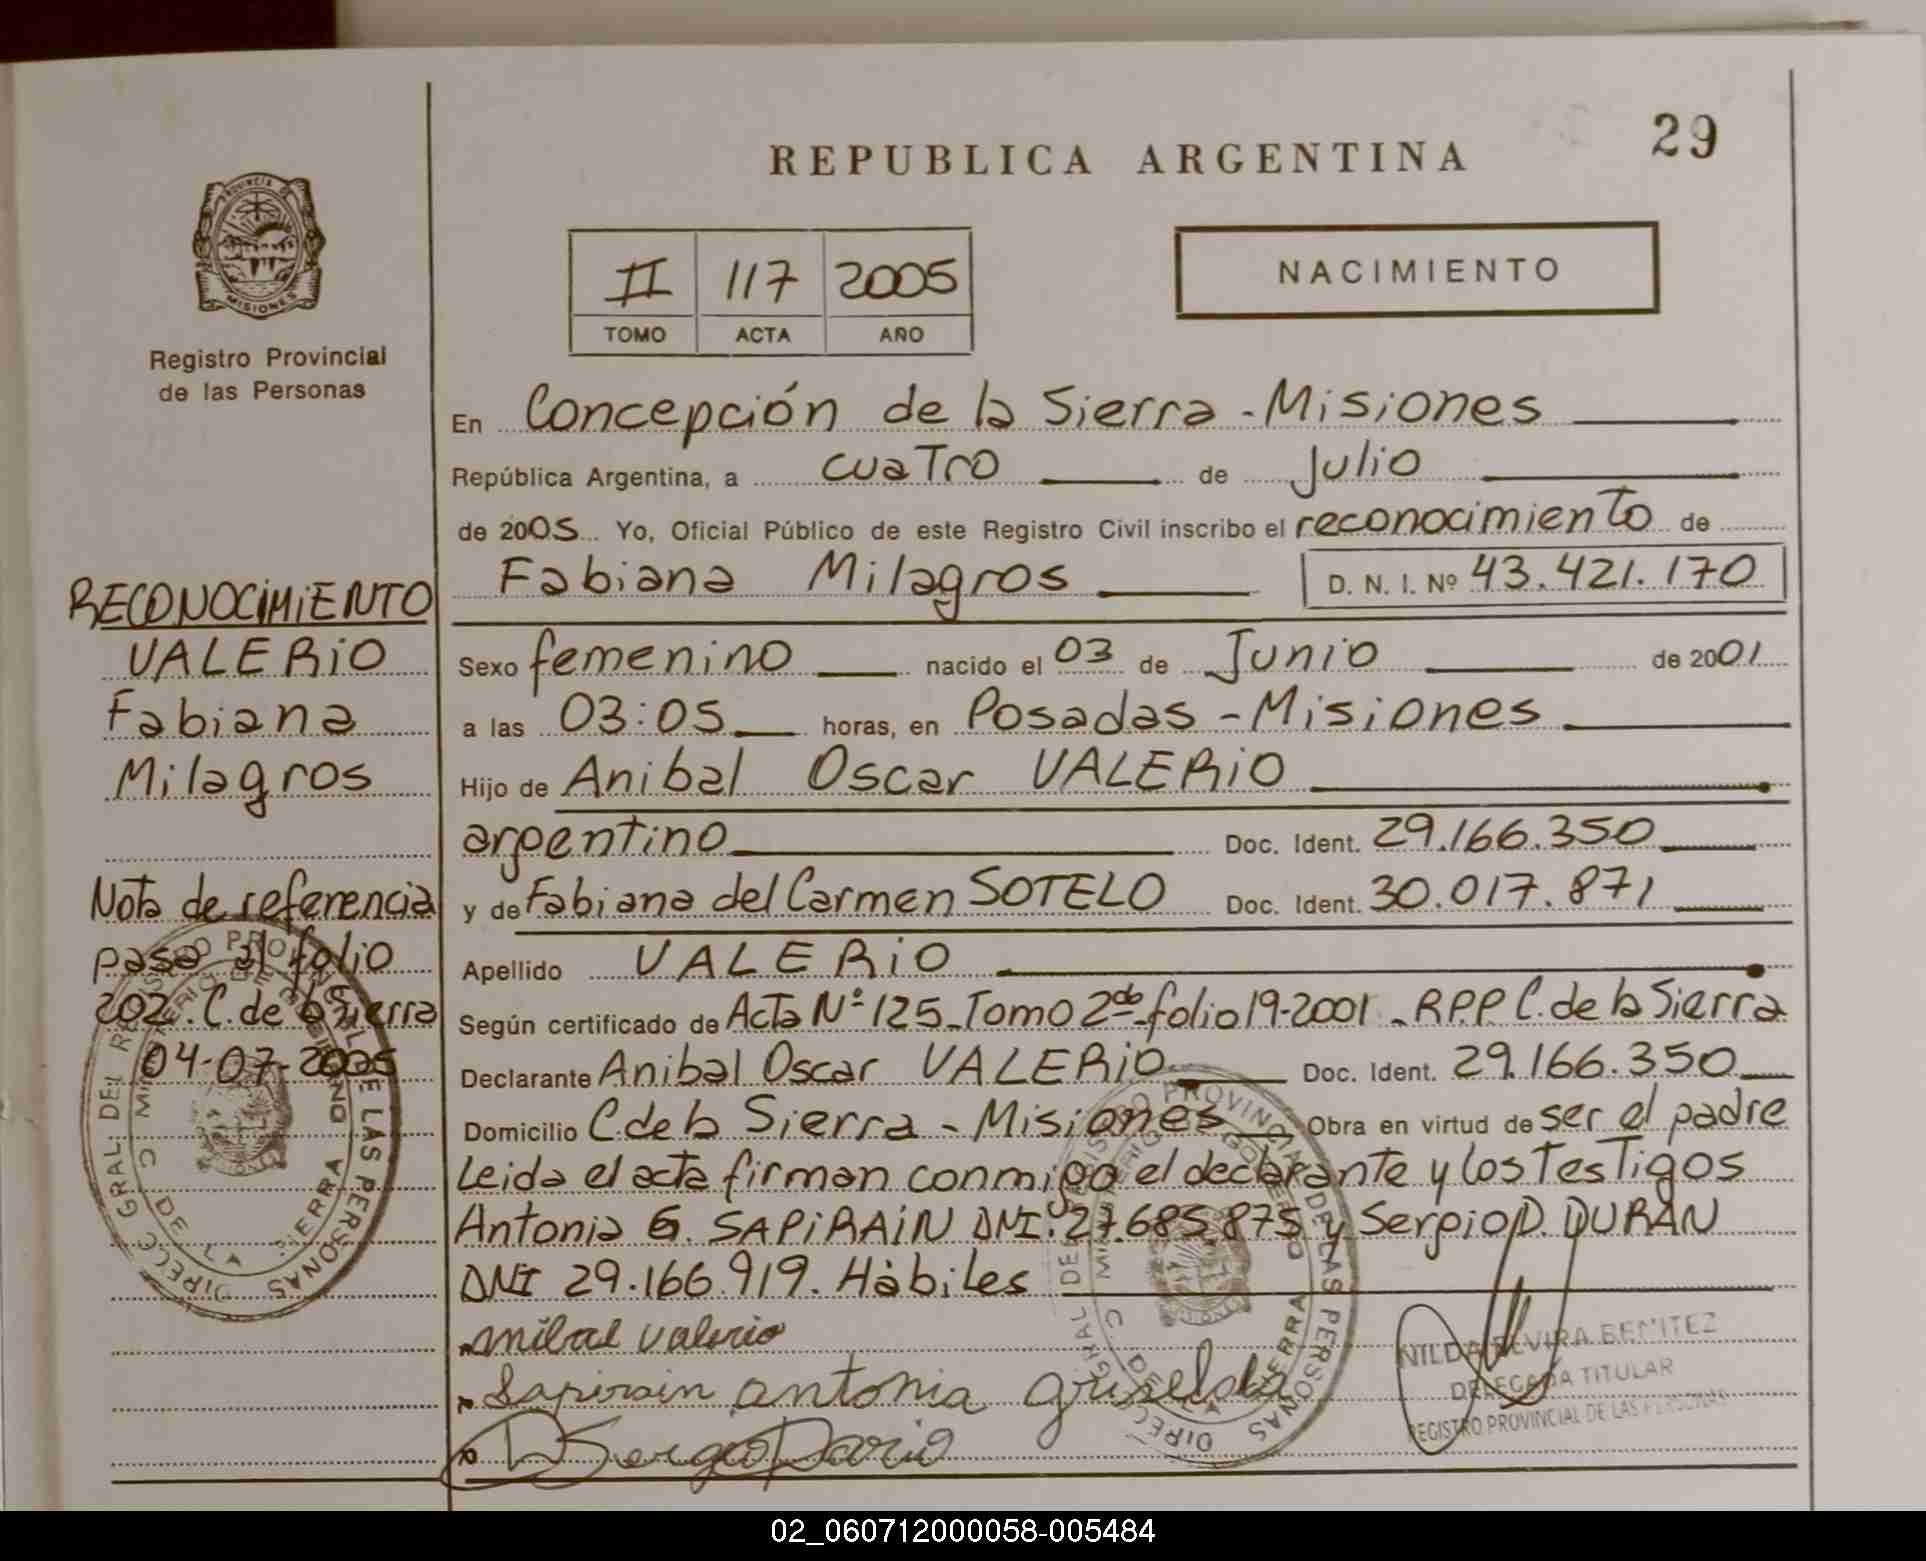 REPUBLICA ARGENTINA
29
PROVINCIA DE
MISIONES
Registro Provincial
de las Personas
II 117 2005
TOMO ACTA AÑO
NACIMIENTO
En Concepción de la Sierra - Misiones
República Argentina, a cuatro de Julio
de 2005 Yo, Oficial Público de este Registro Civil inscribo el reconocimiento de
Fabiana Milagros D. N. I. Nº 43.421.170
Sexo femenino nacido el 03 de Junio de 2001
a las 03:05 horas, en Posadas - Misiones
Hijo de Anibal Oscar VALERIO
argentino Doc. Ident. 29.166.350
y de Fabiana del Carmen SOTELO Doc. Ident. 30.017.871
Apellido VALERIO
Según certificado de Acta Nº 125 - Tomo 2do - folio 19-2001 - R.P.P. C. de la Sierra
Declarante Anibal Oscar VALERIO Doc. Ident. 29.166.350
Domicilio C de la Sierra - Misiones Obra en virtud de ser el padre
Leida el acta firman conmigo el declarante y los testigos
Antonia G. SAPIRAIN DNI: 27.685.875 y Sergio D. DURAN
DNI 29.166.919. Hábiles
Anibal Valerio
Sapirain antonia Griselda
Sergio Dario
NILDA ELVIRA BENITEZ
DELEGADA TITULAR
REGISTRO PROVINCIAL DE LAS PERSONAS
RECONOCIMIENTO
VALERIO
Fabiana
Milagros
Nota de referencia
pasa al folio
202. C. de la Sierra
04-07-2005
DIRECC GRAL DEL REGISTRO PROVINCIAL DE LAS PERSONAS
MINISTERIO DE GOBIERNO
C. DE L. SIERRA
DIRECC GRAL DEL REGISTRO PROVINCIAL DE LAS PERSONAS
MINISTERIO DE GOBIERNO
02_060712000058-005484